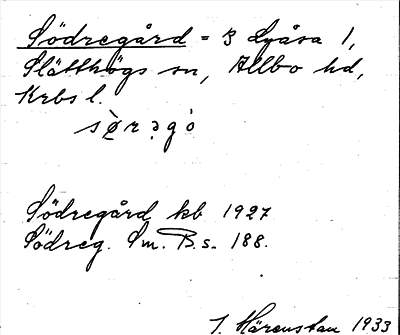 Södregård = B Lyåsa 1,
Slätthögs sn, Allbo hd,
Krbs l.
sø̀rəgó
Södregård kb 1927
Södreg. Sm. B.s. 188.
J. Härenstam 1933